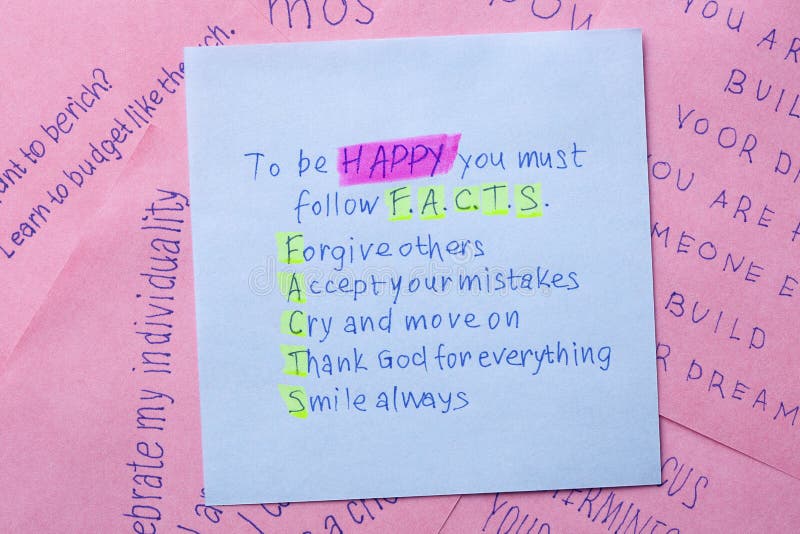 To be HAPPY you must
follow F.A.C.T.S.
Forgive others
Accept your mistakes
Cry and move on
Thank God for everything
Smile always
to be rich?
Learn to budget like the rich.
my individuality
YOU AR
BUIL
YOOR D
YOU ARE
MEONE E
BUILD
R DREAM
CUS
YOUR
dreamstime